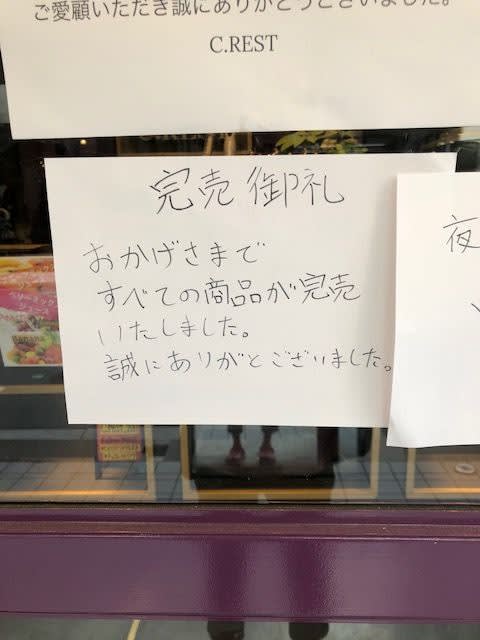 ご愛顧いただき誠にありがとうございました。
C.REST
完売御礼
おかげさまで
すべての商品が完売
いたしました。
誠にありがとございました。
夜